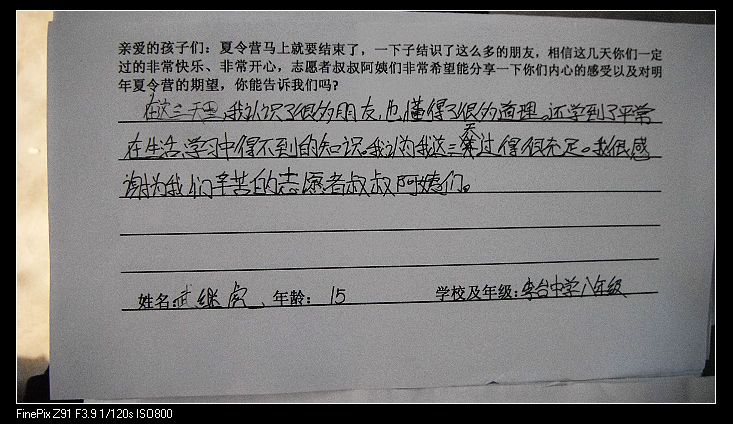 亲爱的孩子们：夏令营马上就要结束了，一下子结识了这么多的朋友，相信这几天你们一定
过的非常快乐、非常开心，志愿者叔叔阿姨们非常希望能分享一下你们内心的感受以及对明
年夏令营的期望，你能告诉我们吗？
在这三天里，我认识了很多朋友，也懂得了很多道理。还学到了平常
在生活，学习中得不到的知识。我认为我这三天过得很充足。我很感
谢为我们辛苦的志愿者叔叔阿姨们。
姓名：武继虎、年龄：15 学校及年级：李台中学八年级
FinePix Z91 F3.9 1/120s ISO800